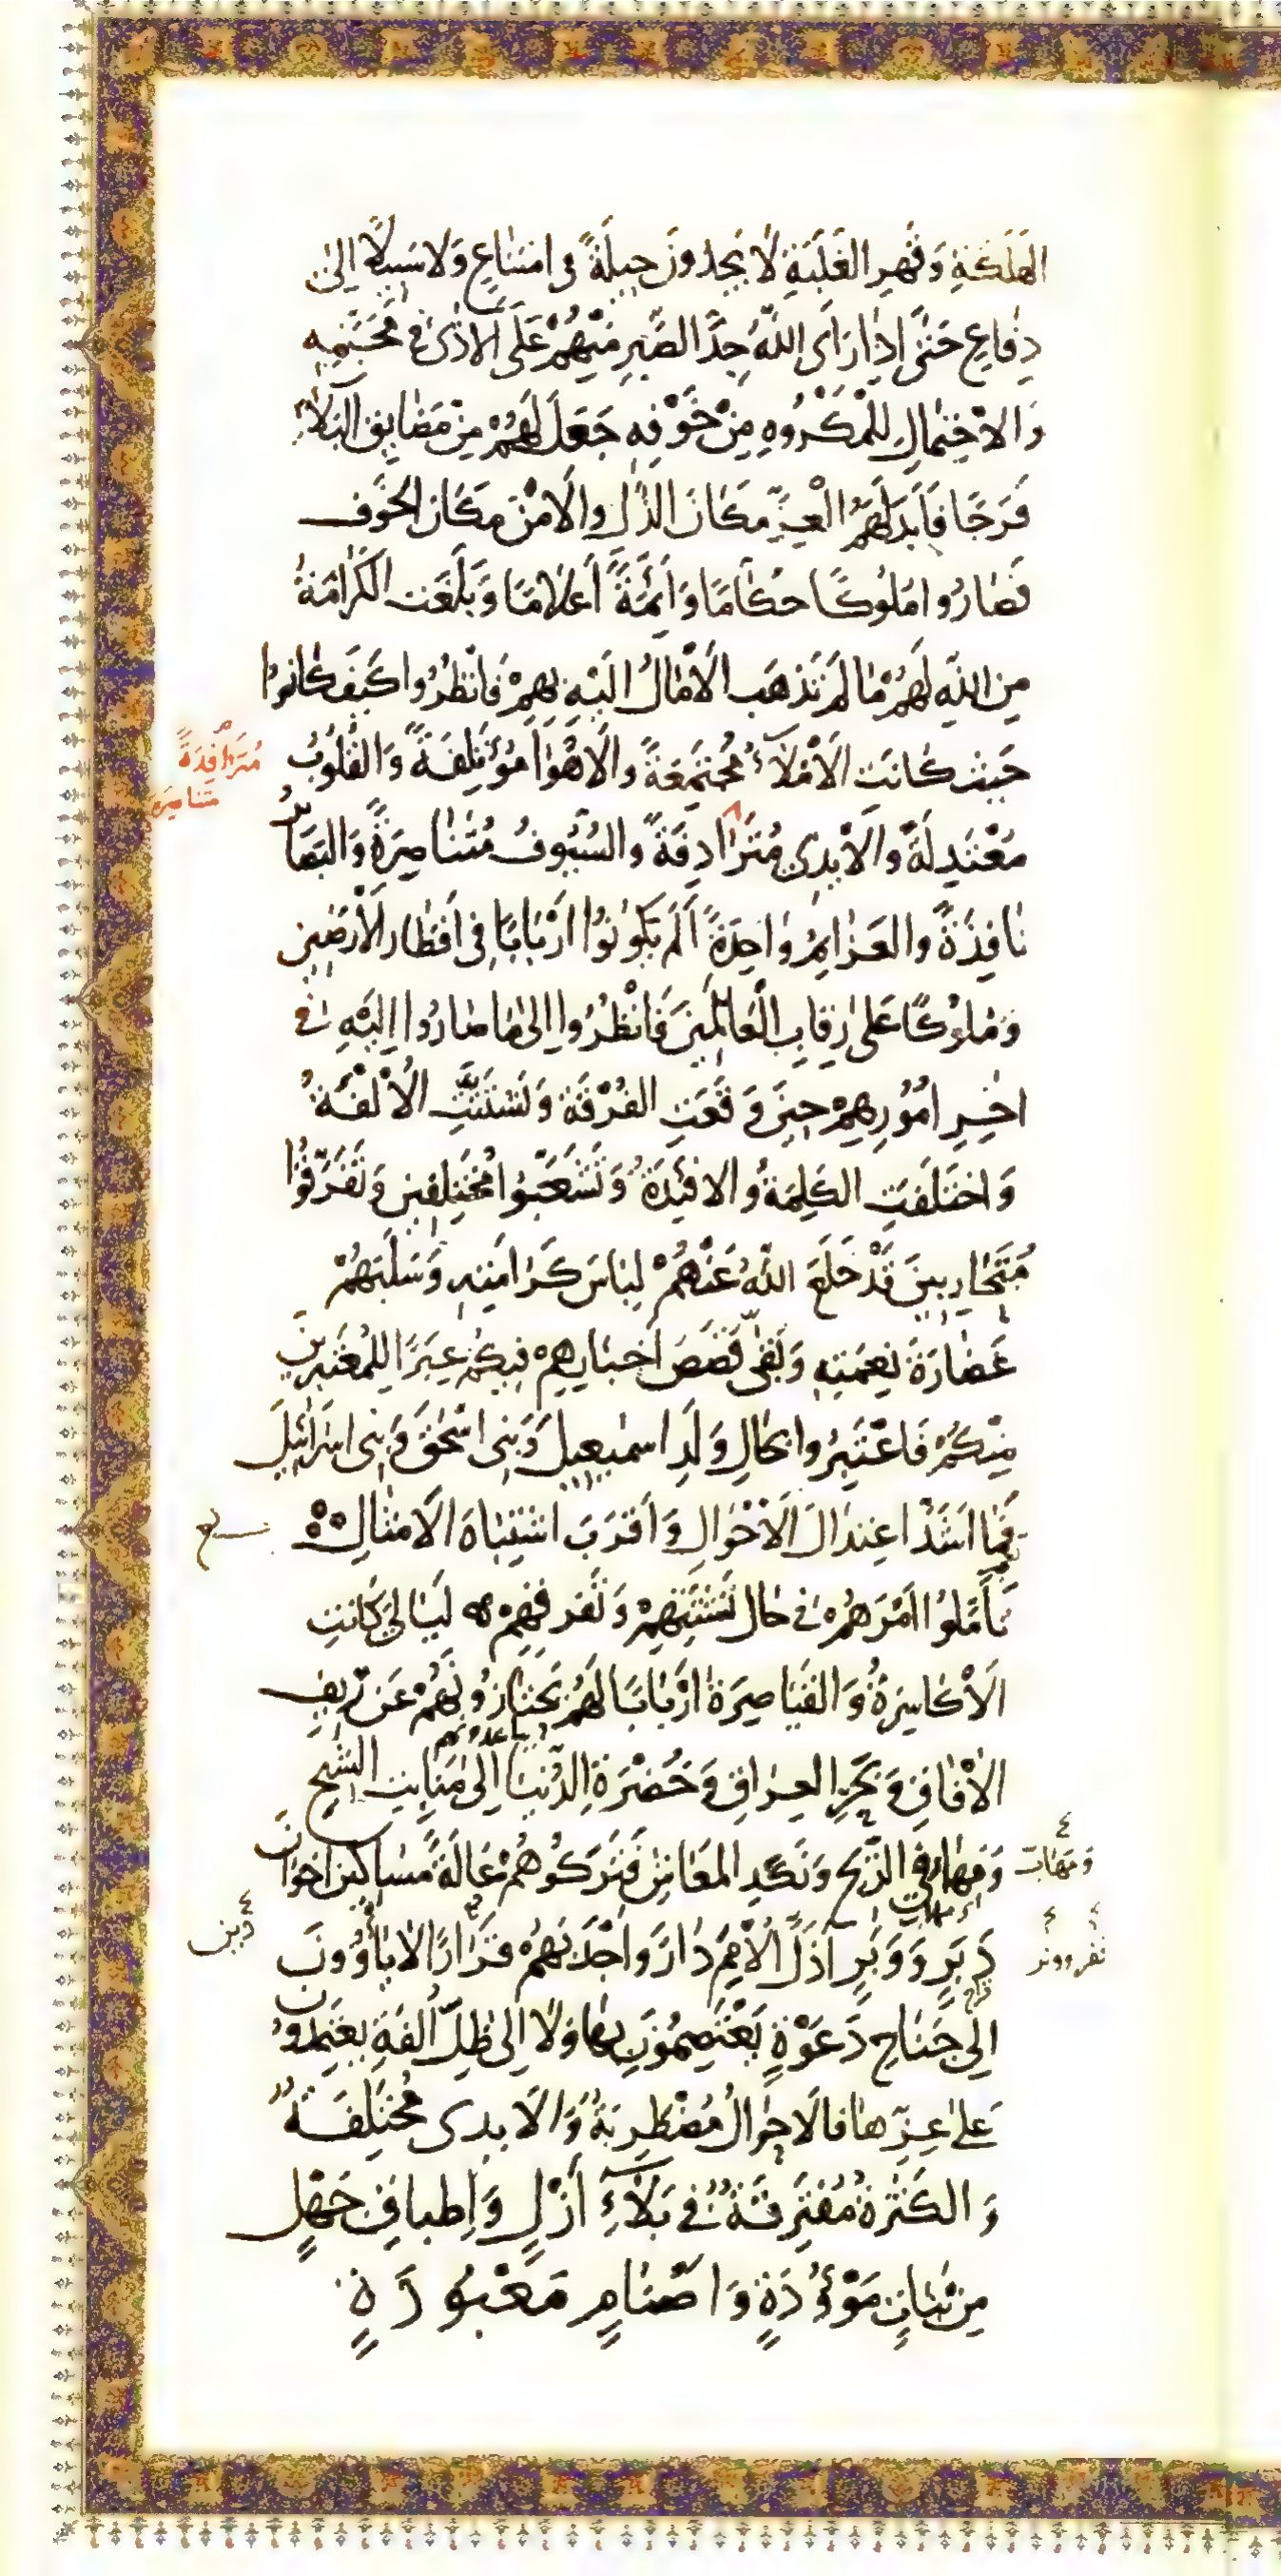 الهَلَكَةِ وَقَهْرِ الغَلَبَةِ لَا يَجِدُونَ حِيلَةً فِي امْتِنَاعٍ وَلَا سَبِيلًا إِلَىٰ
دِفَاعٍ حَتَّىٰ إِذَا رَأَى اللّٰهُ جِدَّ الصَّبْرِ مِنْهُمْ عَلَى الْأَذَىٰ فِي مَحَبَّتِهِ
وَالاحْتِمَالِ لِلْمَكْرُوهِ مِنْ خَوْفِهِ جَعَلَ لَهُمْ مِنْ مَضَايِقِ البَلَاءِ
فَرَجًا فَأَبْدَلَهُمُ الْعِزَّ مَكَانَ الذُّلِّ وَالْأَمْنَ مَكَانَ الخَوْفِ
فَصَارُوا مُلُوكًا حُكَّامًا وَأَئِمَّةً أَعْلَامًا وَبَلَغَتِ الكَرَامَةُ
مِنَ اللّٰهِ لَهُمْ مَا لَمْ تَذْهَبِ الْآمَالُ إِلَيْهِ بِهِمْ فَانْظُرُوا كَيْفَ كَانُوا
حَيْثُ كَانَتِ الْأَمْلَاءُ مُجْتَمِعَةً وَالْأَهْوَاءُ مُؤْتَلِفَةً وَالْقُلُوبُ
مُتَرَافِدَةً
مُتَنَاصِرَة
مُعْتَدِلَةً وَالْأَيْدِي مُتَرَادِفَةً وَالسُّيُوفُ مُتَنَاصِرَةً وَالبَصَائِرُ
نَافِذَةً وَالعَزَائِمُ وَاحِدَةً أَلَمْ يَكُونُوا أَرْبَابًا فِي أَقْطَارِ الْأَرَضِينَ
وَمُلُوكًا عَلَىٰ رِقَابِ الْعَالَمِينَ فَانْظُرُوا إِلَىٰ مَا صَارُوا إِلَيْهِ فِي
آخِرِ أُمُورِهِمْ حِينَ وَقَعَتِ الفُرْقَةُ وَتَشَتَّتَتِ الْأُلْفَةُ
وَاخْتَلَفَتِ الكَلِمَةُ وَالْأَفْئِدَةُ وَتَشَعَّبُوا مُخْتَلِفِينَ وَتَفَرَّقُوا
مُتَحَارِبِينَ قَدْ خَلَعَ اللّٰهُ عَنْهُمْ لِبَاسَ كَرَامَتِهِ وَسَلَبَهُمْ
غَضَارَةَ نِعْمَتِهِ وَبَقَّىٰ قَصَصَ أَخْبَارِهِمْ فِيكُمْ عِبَرًا لِلْمُعْتَبِرِينَ
مِنْكُمْ فَاعْتَبِرُوا بِحَالِ وَلَدِ إِسْمٰعِيلَ وَبَنِي إِسْحٰقَ وَبَنِي إِسْرَائِيلَ
فَمَا أَشَدَّ اعْتِدَالَ الْأَحْوَالِ وَأَقْرَبَ اشْتِبَاهَ الْأَمْثَالِ
تَأَمَّلُوا أَمْرَهُمْ فِي حَالِ تَشَتُّتِهِمْ وَتَفَرُّقِهِمْ لَيَالِيَ كَانَتِ
الْأَكَاسِرَةُ وَالقَيَاصِرَةُ أَرْبَابًا لَهُمْ يَحْتَازُونَهُمْ عَنْ رِيفِ
الْآفَاقِ وَبَحْرِ العِرَاقِ وَخُضْرَةِ الدُّنْيَا إِلَىٰ مَنَابِتِ الشِّيحِ
وَمَهَافِي الرِّيحِ وَنَكَدِ المَعَاشِ فَتَرَكُوهُمْ عَالَةً مَسَاكِينَ إِخْوَانَ
دَبَرٍ وَوَبَرٍ أَذَلَّ الْأُمَمِ دَارًا وَأَجْدَبَهُمْ قَرَارًا لَا يَأْوُونَ
إِلَىٰ جَنَاحِ دَعْوَةٍ يَعْتَصِمُونَ بِهَا وَلَا إِلَىٰ ظِلِّ أُلْفَةٍ يَعْتَمِدُونَ
عَلَىٰ عِزِّهَا فَالْأَحْوَالُ مُضْطَرِبَةٌ وَالْأَيْدِي مُخْتَلِفَةٌ
وَالكَثْرَةُ مُفْتَرِقَةٌ فِي بَلَاءِ أَزْلٍ وَإِطْبَاقِ جَهْلٍ
مِنْ بَنَاتٍ مَوْؤُدَةٍ وَأَصْنَامٍ مَعْبُودَةٍ